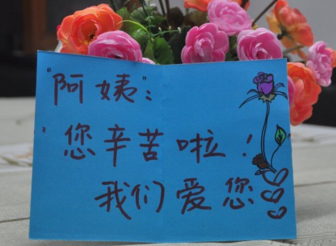 "阿姨":
您辛苦啦！
我们爱您